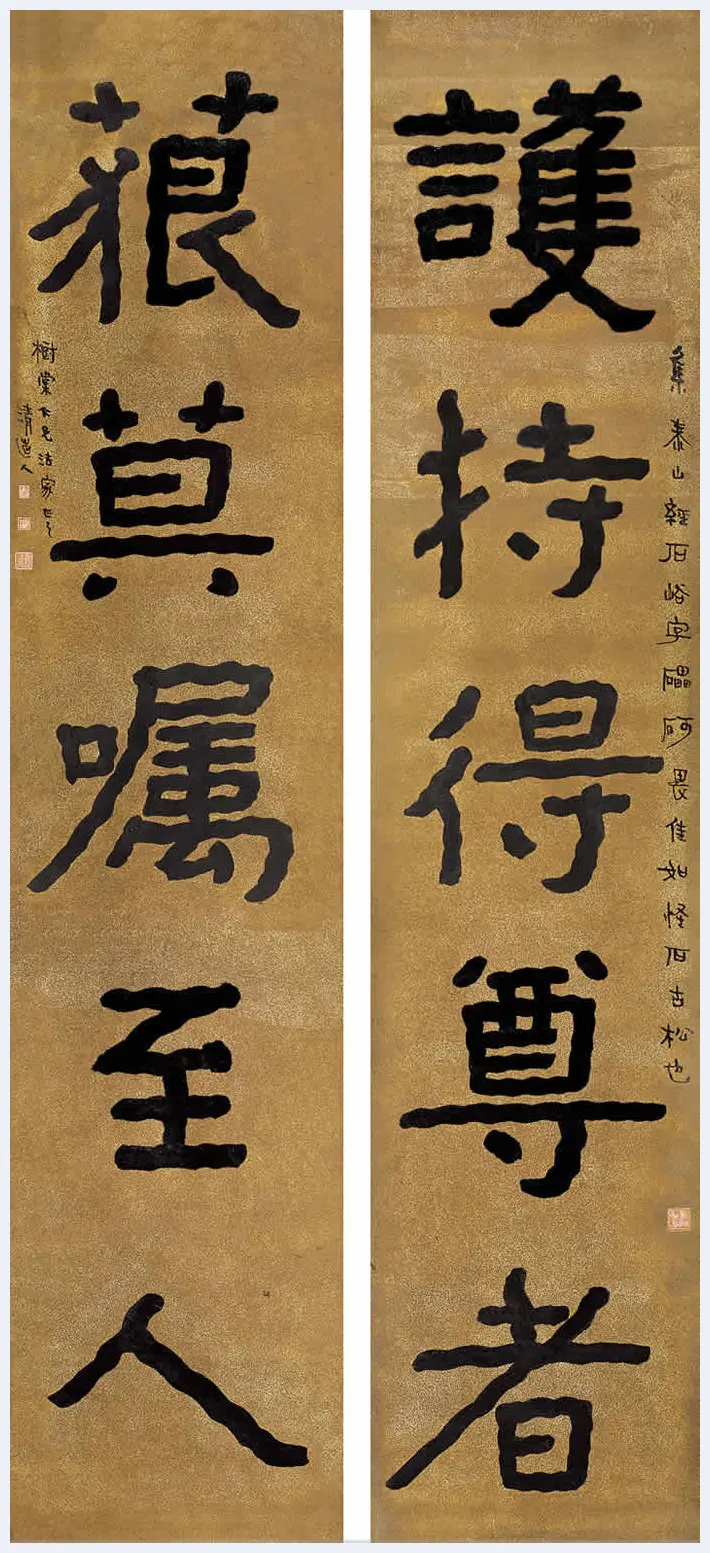 護持得尊者
集泰山經石峪字礧砢畏佳如怪石古松也
莫囑至人
樹棠仁兄法家正之
清道人